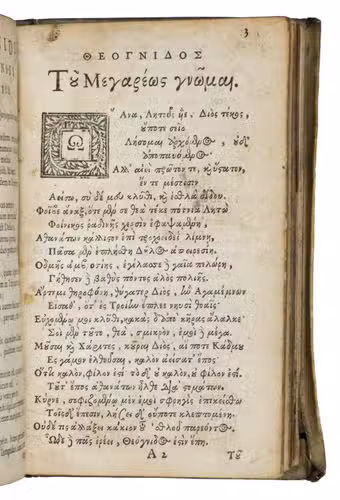 3
ΘΕΟΓΝΙΔΟΣ
Τοῦ Μεγαρέως γνῶμαι.
Ὦ Ἄνα, Λητοῦς υἱὲ, Διὸς τέκος,
οὔποτε σεῖο
Λήσομαι ἀρχόμενος, οὐδ'
ἀποπαυόμενος.
Ἀλλ' αἰεὶ πρῶτόν τε, καὶ ὕστατον,
ἔν τε μέσοισιν
Ἀείσω, σὺ δέ μευ κλῦθι, καὶ ἐσθλὰ δίδου.
Φοῖβε ἄναξ, ὅτε μέν σε θεὰ τέκε πότνια Λητὼ
Φοίνικος ῥαδινῆς χερσὶν ἐφαψαμένη,
Ἀθανάτων κάλλιστον ἐπὶ τροχοειδέϊ λίμνῃ,
Πᾶσα μὲν ἐπλήσθη Δῆλος ἀπειρεσίη
Ὀδμῆς ἀμβροσίης, ἐγέλασσε δὲ γαῖα πελώρη,
Γήθησεν δὲ βαθὺς πόντος ἁλὸς πολιῆς.
Ἄρτεμι θηροφόνη, θύγατερ Διὸς, ἣν Ἀγαμέμνων
Εἵσαθ', ὅτ' ἐς Τροίην ἔπλεε νηυσὶ θοῇς,
Εὐχομένῳ μοι κλῦθι, κακὰς δ' ἀπὸ κῆρας ἄλαλκε·
Σοὶ μὲν τοῦτο, θεὰ, σμικρὸν, ἐμοὶ δὲ μέγα.
Μοῦσαι καὶ Χάριτες, κοῦραι Διὸς, αἵ ποτε Κάδμου
Ἐς γάμον ἐλθοῦσαι, καλὸν ἀείσατ' ἔπος·
Ὅττι καλὸν, φίλον ἐστί· τὸ δ' οὐ καλὸν, οὐ φίλον ἐστί.
Τοῦτ' ἔπος ἀθανάτων ἦλθε διὰ στομάτων.
Κύρνε, σοφιζομένῳ μὲν ἐμοὶ σφρηγὶς ἐπικείσθω
Τοῖσδ' ἔπεσιν, λήσει δ' οὔποτε κλεπτόμενα.
Οὐδέ τις ἀλλάξει κάκιον τοὐσθλοῦ παρεόντος
Ὧδε δὲ πᾶς ἐρέει, Θεόγνιδός ἐστιν ἔπη
A 2
Τοῦ